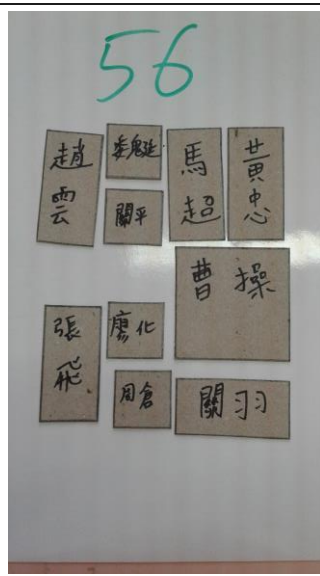 56
趙雲
魏延
關平
馬超
黃忠
曹操
張飛
廖化
周倉
關羽